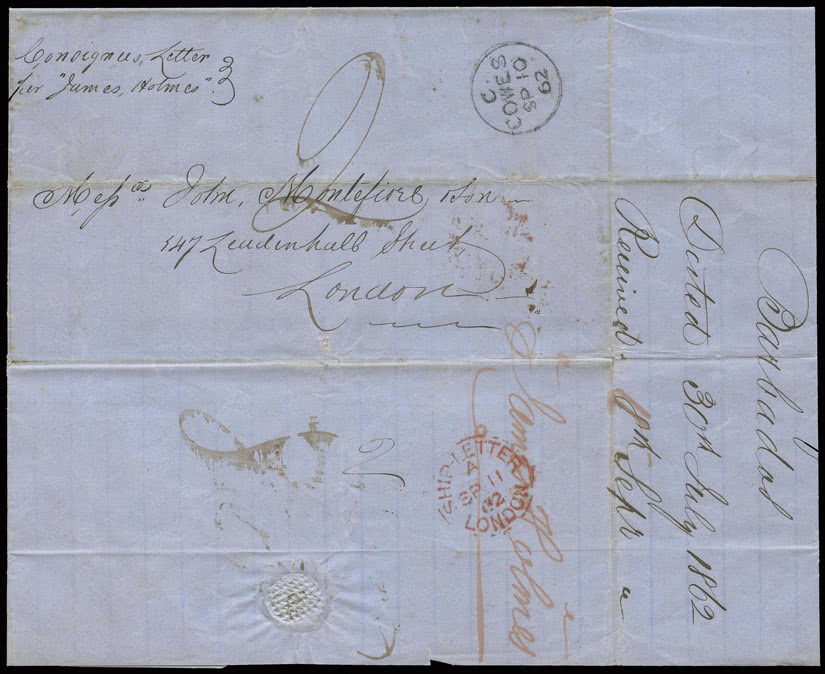 Consignees, Letter
per "James, Holmes".
2
COWES
C
SP 10
62
Messrs. John, Montefiore & Son
147 Leadenhall Street
London
Barbados
Dated 30th July 1862
Received Sepr
James Holmes
SHIP-LETTER
A
SP 11
62
LONDON
2